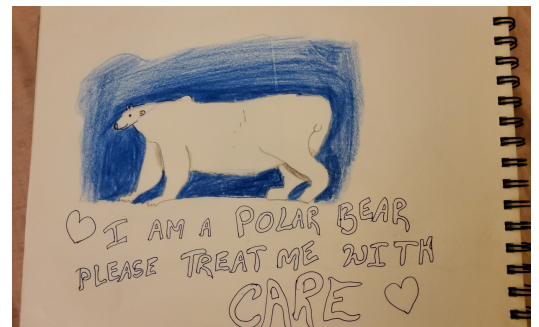 I AM A POLAR BEAR
PLEASE TREAT ME WITH
CARE